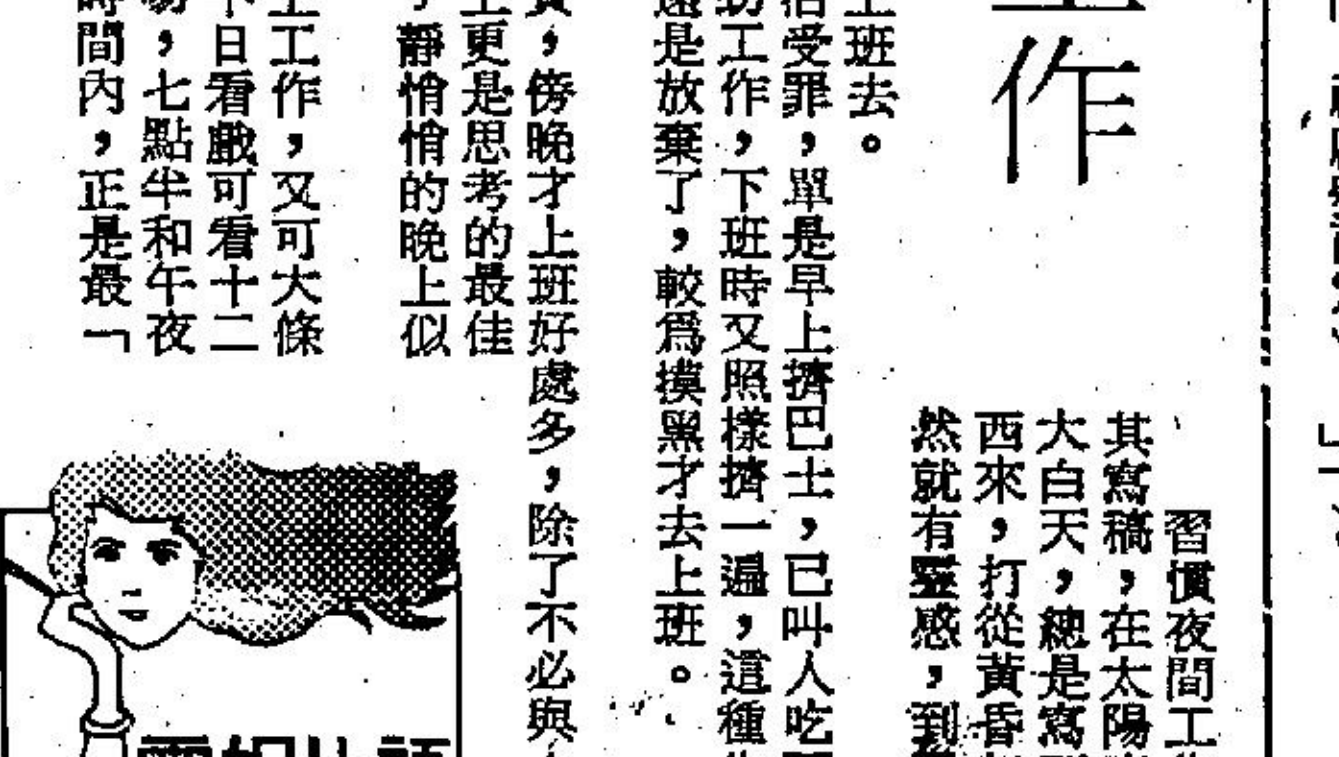 作
習慣夜間工
其寫稿，在太陽
大白天，總是寫
西來，打從黃昏
然就有靈感，到
上班去。
活受罪，單是早上擠巴士，已叫人吃
工作，下班時又照樣擠一遍，這種
還是放棄了，較爲摸黑才去上班。
，傍晚才上班好處多，除了不必與
上更是思考的最佳
靜悄悄的晚上似
工作，又可大條
日看戲可看十二
易，七點半和午夜
時間內，正是最「